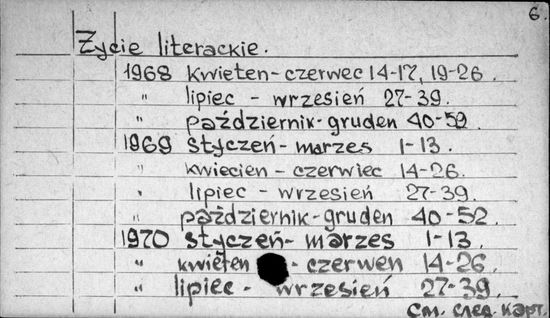 6.
Życie literackie.
1968 kwieten-czerwec 14-17, 19-26.
" lipiec - wrzesień 27-39.
" październik-gruden 40-59.
1969 styczeń-marzes 1-13.
" kwiecien-czerwiec 14-26.
" lipiec - wrzesień 27-39.
" październik-gruden 40-52.
1970 styczeń-marzes 1-13.
" kwieten - czerwen 14-26.
" lipiec - wrzesień 27-39.
См. след. карт.